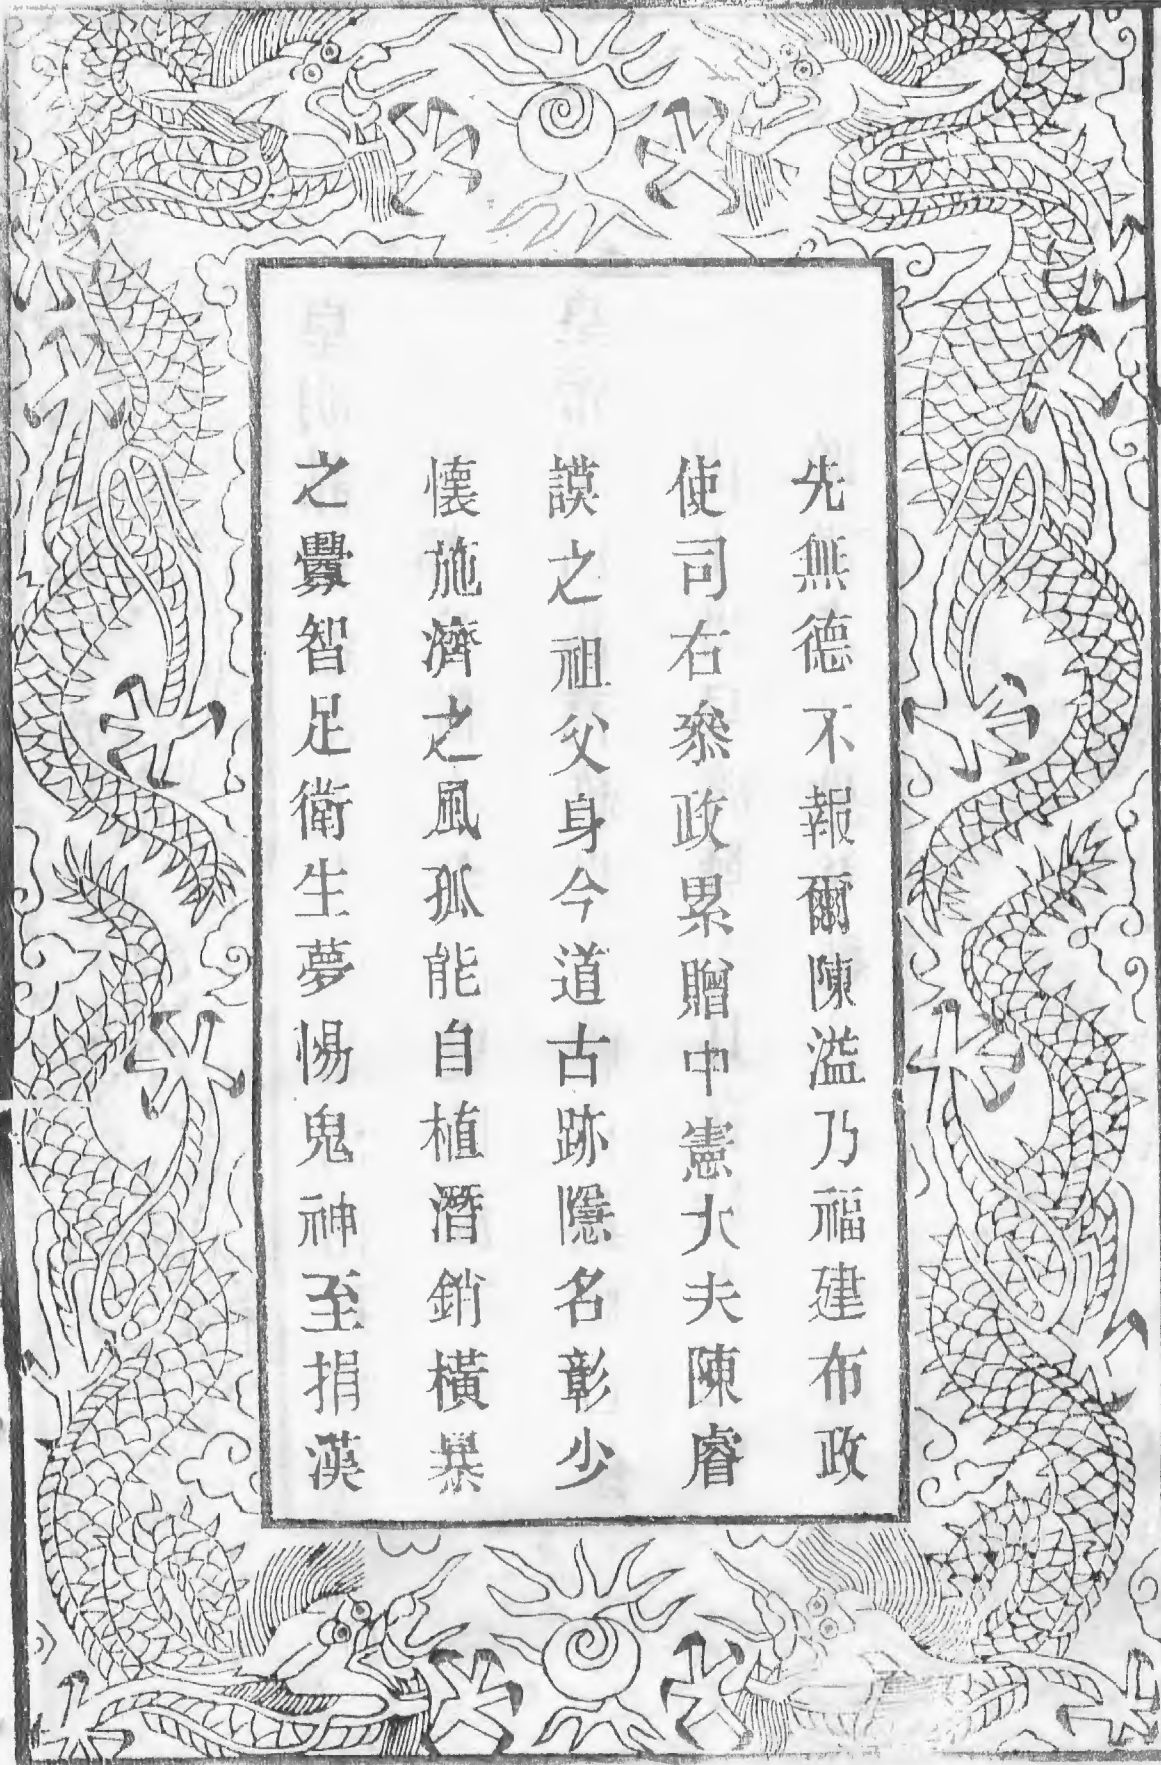 先無德不報爾陳溢乃福建布政
使司右叅政累贈中憲大夫陳睿
謨之祖父身今道古跡隱名彰少
懷施濟之風孤能自植潛銷橫暴
之釁智足衛生夢惕鬼神至捐漢